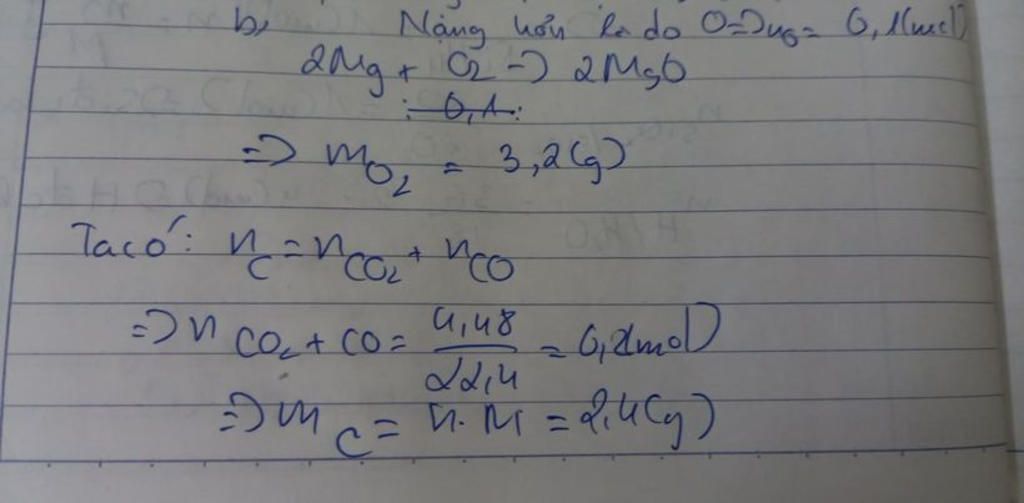 b, Nặng hơn là do O => nO = 0,1(mol)
2Mg + O2 -> 2MgO
0,1
=> mO2 = 3,2(g)
Ta có: nC = nCO2 + nCO
=> n CO2 + CO = 4,48/22,4 = 0,2(mol)
=> m C = n.M = 2,4(g)